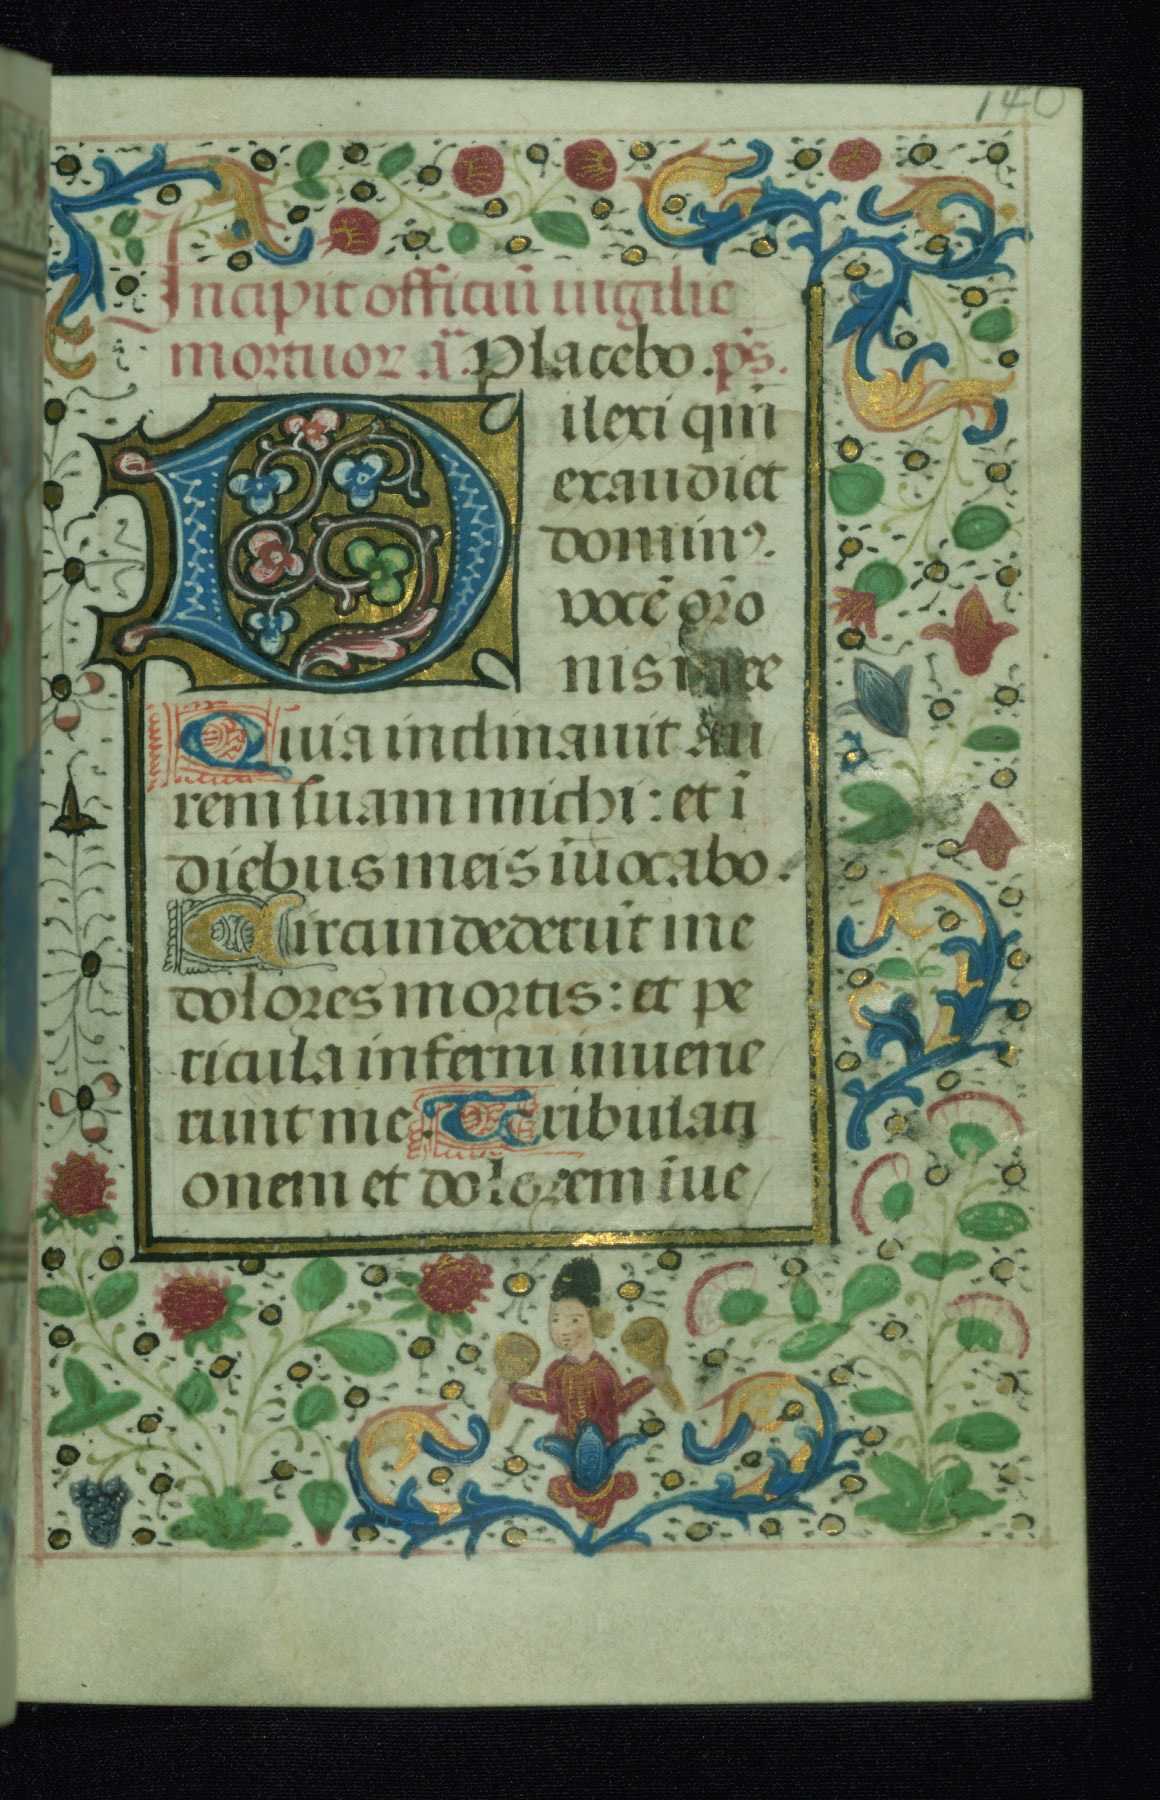 140
Incipit officiū uigilie
mortuor añ. Placebo. ps.
Dilexi qm̄
exaudiet
domin⁹.
vocē or̄o
nis mee
Quia inclinauit au
rem suam michi: et ī
diebus meis īuocabo.
Circundederūt me
dolores mortis: et pe
ricula inferni inuene
runt me. Tribulati
onem et dolorem īue